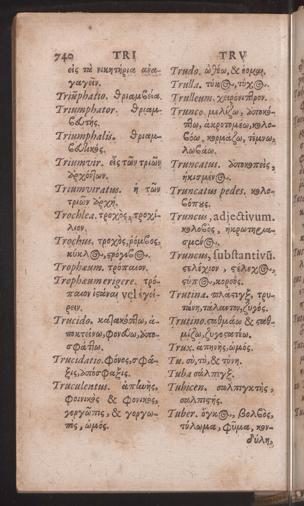 740 TRI TRV
εἰς τὰ νικητήρια ἀνα-
γαγεῖν.
Triũphatio. θριαμβεία.
Triumphator. θριαμ-
βευτής.
Triumphalis. θριαμ-
βευτικός.
Triumvir. εἷς τῶν τριῶν
ἀρχόντων.
Triumviratus. ἡ τῶν
τριῶν ἀρχή.
Trochlea. τροχὸς, τροχί-
λιον.
Trochus. τροχὸς, ῥόμβος,
κύκλος,
Tropheum. τρόπαιον.
Tropheum erigere. τρό-
παιον ἱστάναι vel ἐγεί-
ρειν.
Trucido. κατακόπτω, ἀ-
ποκτείνω, φονεύω, ἀπο-
σφάττω.
Trucidatio. φόνος, σφά-
ξις, ἀπόσφαξις.
Truculentus. ἀπηνής,
φοινικὸς & φονικὸς,
γοργῶπις, & γοργω-
πὸς, ὠμός.
Trudo. ὠθέω, &
Trulla.
Trulleum. χειρόνιπτρον.
Trunco. μελίζω, ἀποκό-
πτω, ἀκροτομέω, κολο-
βόω, κορμάζω, τέμνω,
λωβάω.
Truncatus. ἀποκοπεὶς,
ἠκισμένος.
Truncatus pedes. κολο-
βόπους.
Truncus, adjectivum.
κολοβὸς, ἠκρωτηρια-
σμένος.
Truncus, substantivũ.
στέλεχος,
κορμός.
Trutina. πλάστιγξ, τρυ-
τάνη, τάλαντον, ζυγός.
Trutino. σταθμάω & σταθ-
μίζω, ζυγοστατέω.
Trux. ἀπηνὴς, ὠμός.
Tu. σὺ, τὺ, & τύνη.
Tuba σάλπιγξ.
Tubicen. σαλπιγκτὴς,
σαλπιστής.
Tuber. ὄγκος, βολβὸς,
τύλωμα, φῦμα, κον-
δύλη,